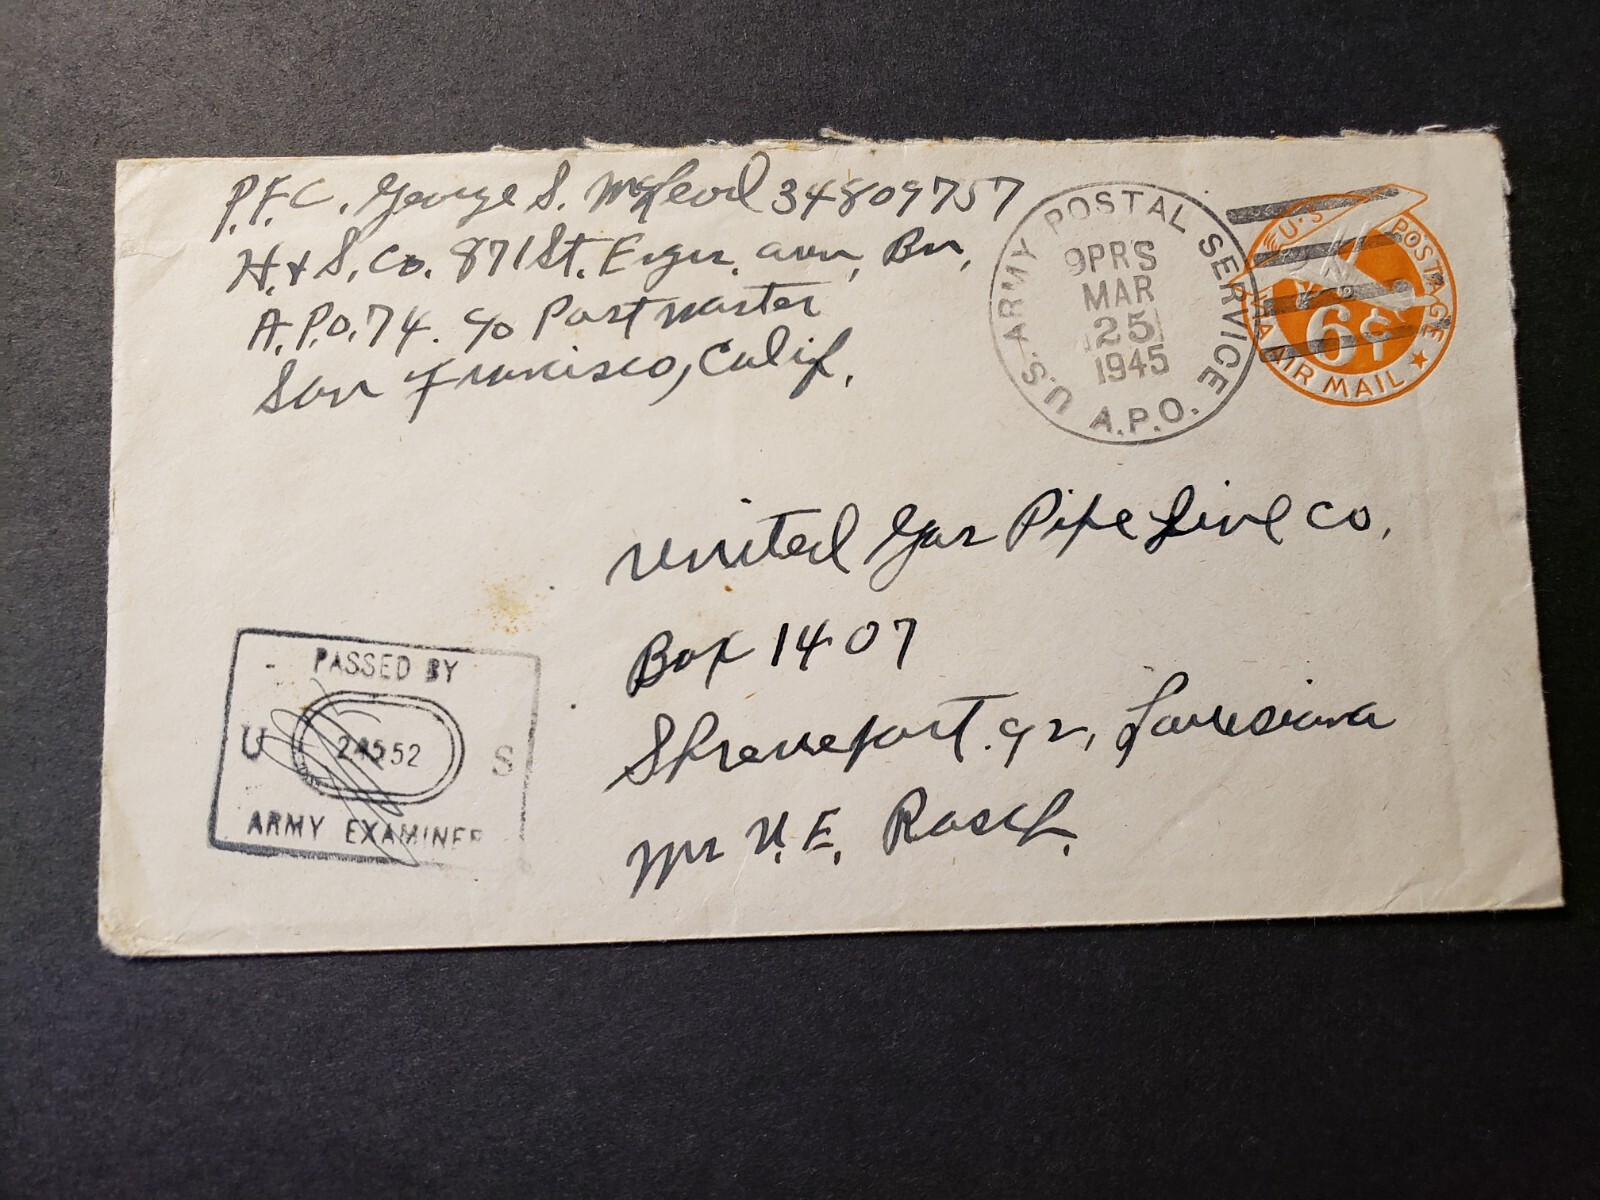 P.F.C. George S. McLeod 34809757
H. & S. Co. 871st. Engr. avn, Bn,
A.P.O. 74. c/o Postmaster
San Francisco, Calif.
U.S. ARMY POSTAL SERVICE
9PRS
MAR
25
1945
A.P.O.
U.S. POSTAGE
6¢
VIA AIR MAIL
United Gas Pipe Line Co.
Box 1407
Shreveport. 92, Louisiana
Mr. E.
PASSED BY
U 24552 S
ARMY EXAMINER